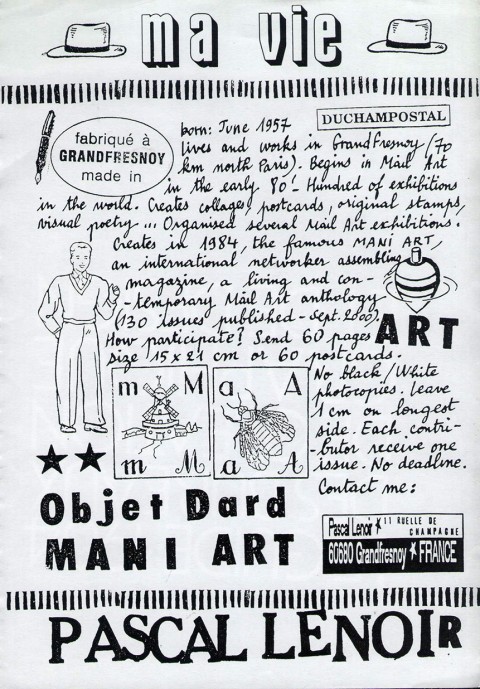 ma vie
fabriqué à
GRANDFRESNOY
made in
DUCHAMPOSTAL
born: June 1957
lives and works in GrandFresnoy (70
km north Paris). Begins in Mail Art
in the early 80'. Hundred of exhibitions
in the world. Creates collages, postcards, original stamps,
visual poetry... Organised several Mail Art exhibitions.
Creates in 1984, the famous MANI ART,
an international networker assembling
magazine, a living and con-
-temporary Mail Art anthology
(130 issues published - Sept. 2000).
How participate? Send 60 pages
size 15x21 cm or 60 postcards.
ART
No black/White
photocopies. Leave
1 cm on longest
side. Each contri-
-butor receive one
issue. No deadline.
Contact me:
m M
m M
a A
a A
Objet Dard
MANI ART
Pascal Lenoir * 11 RUELLE DE
CHAMPAGNE
60680 Grandfresnoy * FRANCE
PASCAL LENOIR